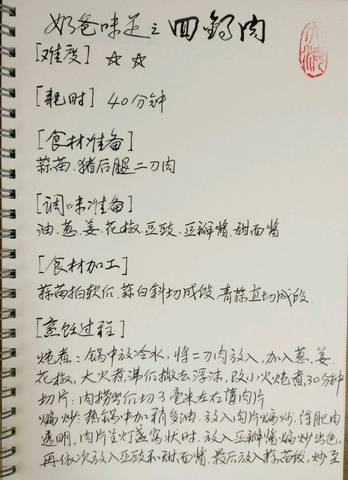 奶爸味道之回锅肉
[难度] ☆ ☆
[耗时] 40分钟
[食材准备]
蒜苗.猪后腿二刀肉
[调味准备]
油.葱.姜.花椒.豆豉.豆瓣酱.甜面酱
[食材加工]
蒜苗拍软后.蒜白斜切成段.青蒜直切成段.
[烹饪过程]
炖煮：锅中放冷水，将二刀肉放入，加入葱、姜
花椒，大火煮沸后撇去浮沫，改小火炖煮30分钟
切片：肉捞出后切3毫米左右薄肉片
煸炒：热锅中加稍多油.放入肉片煸炒.待肥肉
透明，肉片呈灯盏窝状时.放入豆瓣酱煸炒出色，
再依次放入豆豉和甜面酱.最后放入蒜苗段，炒至